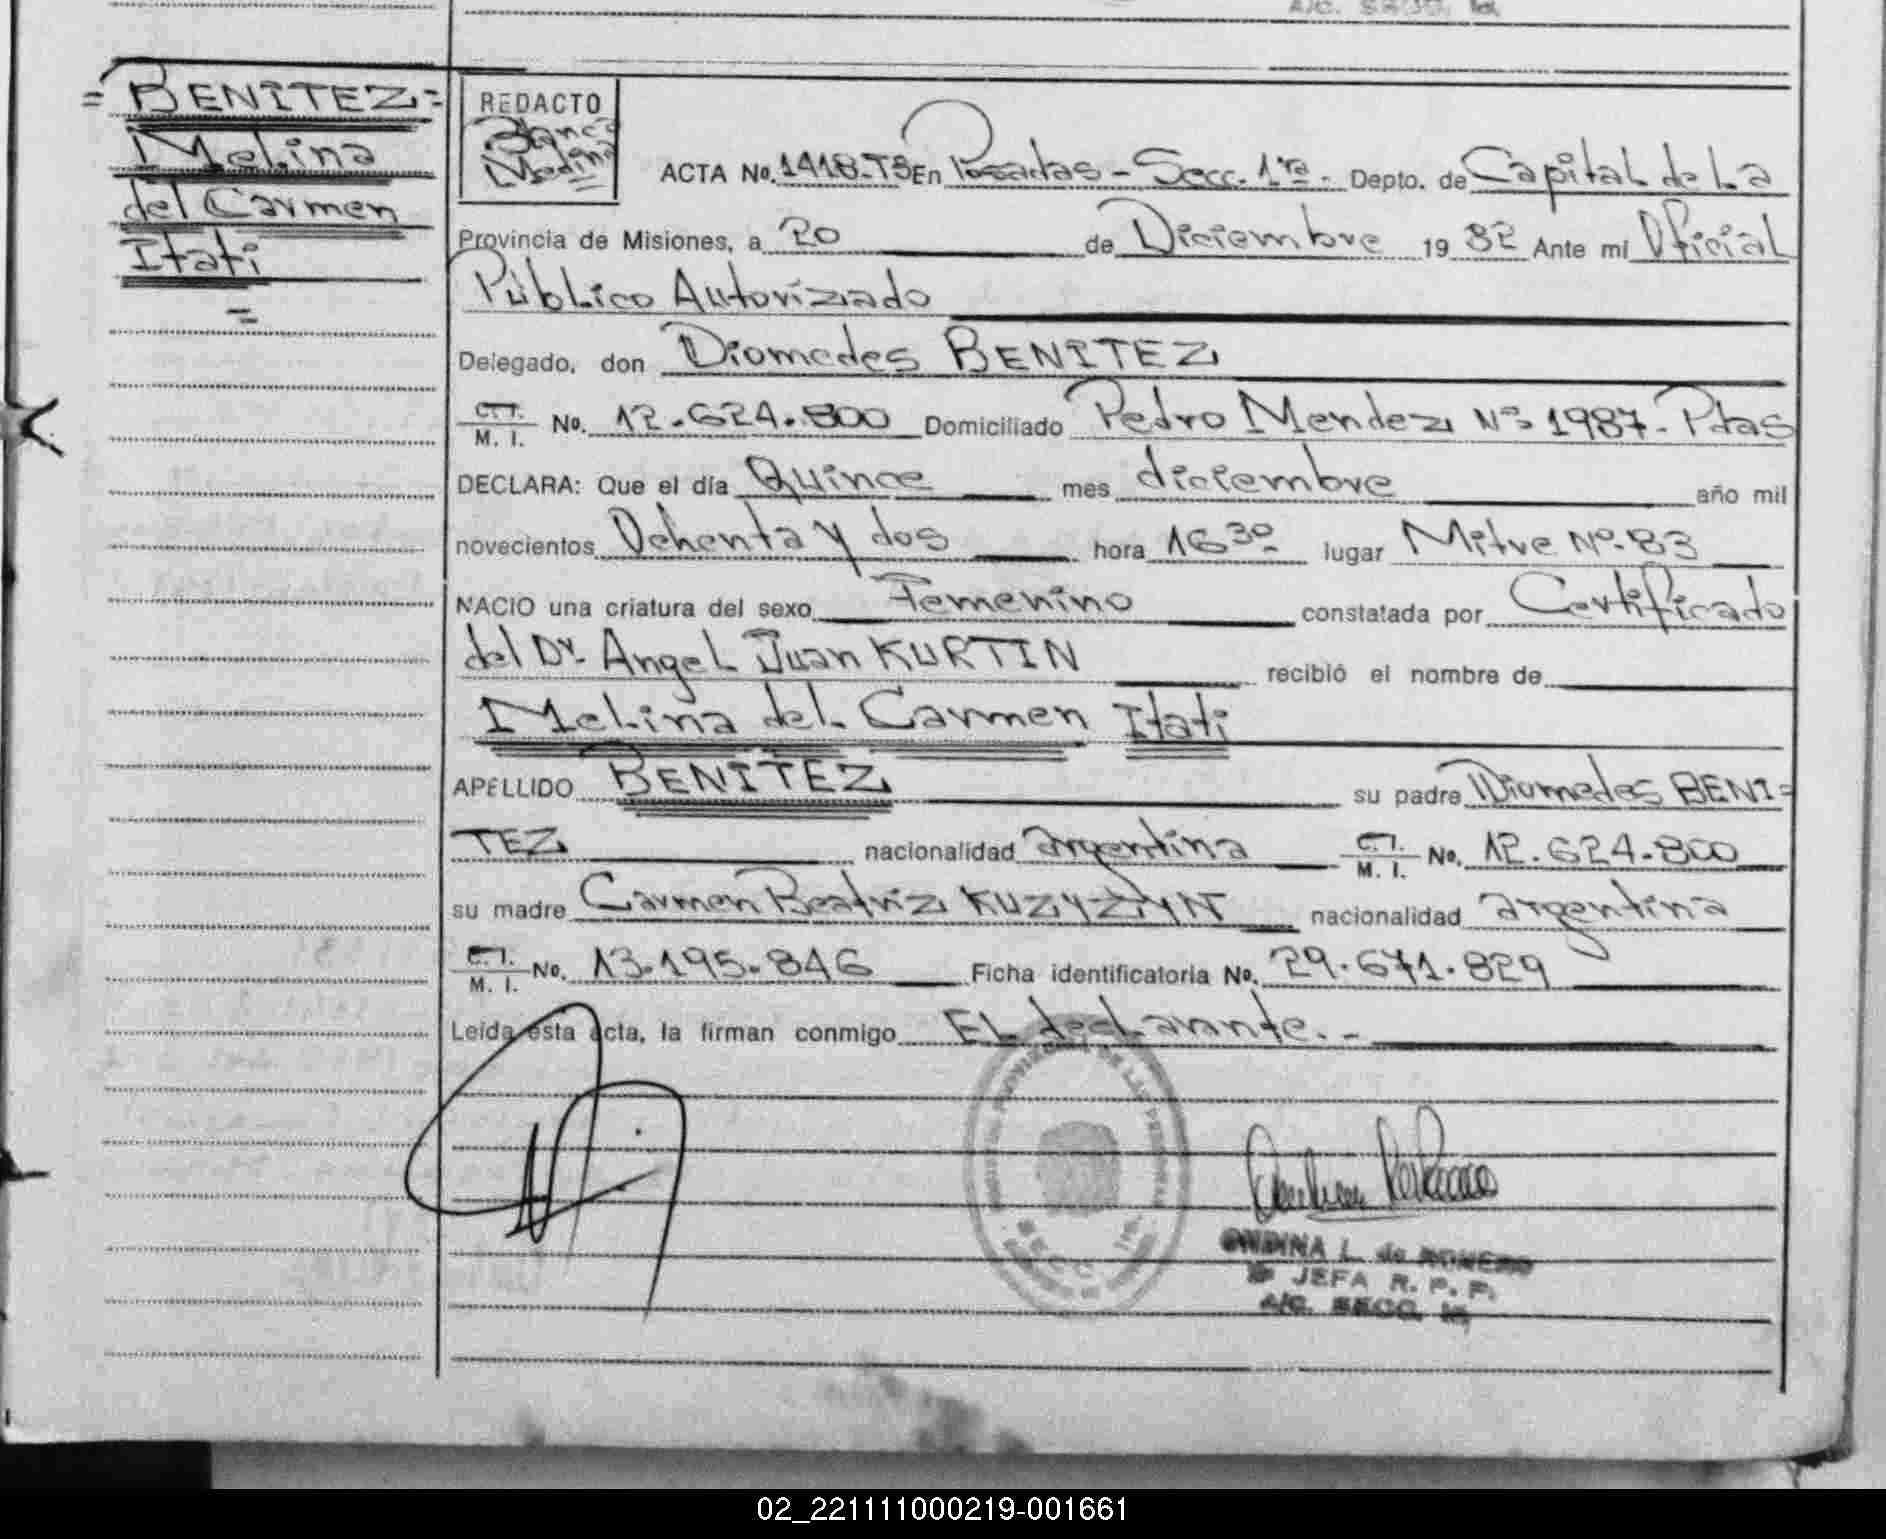 = BENITEZ =
Melina
del Carmen
Itati
=
REDACTO
Blanca
Medina
ACTA No. 1418-T8 En Posadas - Secc. 1ra. Depto. de Capital de La
Provincia de Misiones, a 20 de Diciembre 19 82 Ante mi Oficial
Público Autorizado
Delegado, don Diomedes BENITEZ
C. I. / M. I. No. 12.624.800 Domiciliado Pedro Mendez Nº 1987. Pdas
DECLARA: Que el día Quince mes diciembre año mil
novecientos Ochenta y dos hora 16 30 lugar Mitre Nº 83
NACIO una criatura del sexo Femenino constatada por Certificado
del Dr. Angel Juan KURTIN recibió el nombre de
Melina del Carmen Itati
APELLIDO BENITEZ su padre Diomedes BENI=
TEZ nacionalidad argentina C. I. / M. I. No. 12.624.800
su madre Carmen Beatriz KUZYZYN nacionalidad argentina
C. I. / M. I. No. 13.195.846 Ficha identificatoria No. 29.671.829
Leída esta acta, la firman conmigo EL declarante. -
SECC. 1ra.
ONDINA L. de ROMERO
JEFA R. P. P.
A/C. SECC. 1a
02_221111000219-001661